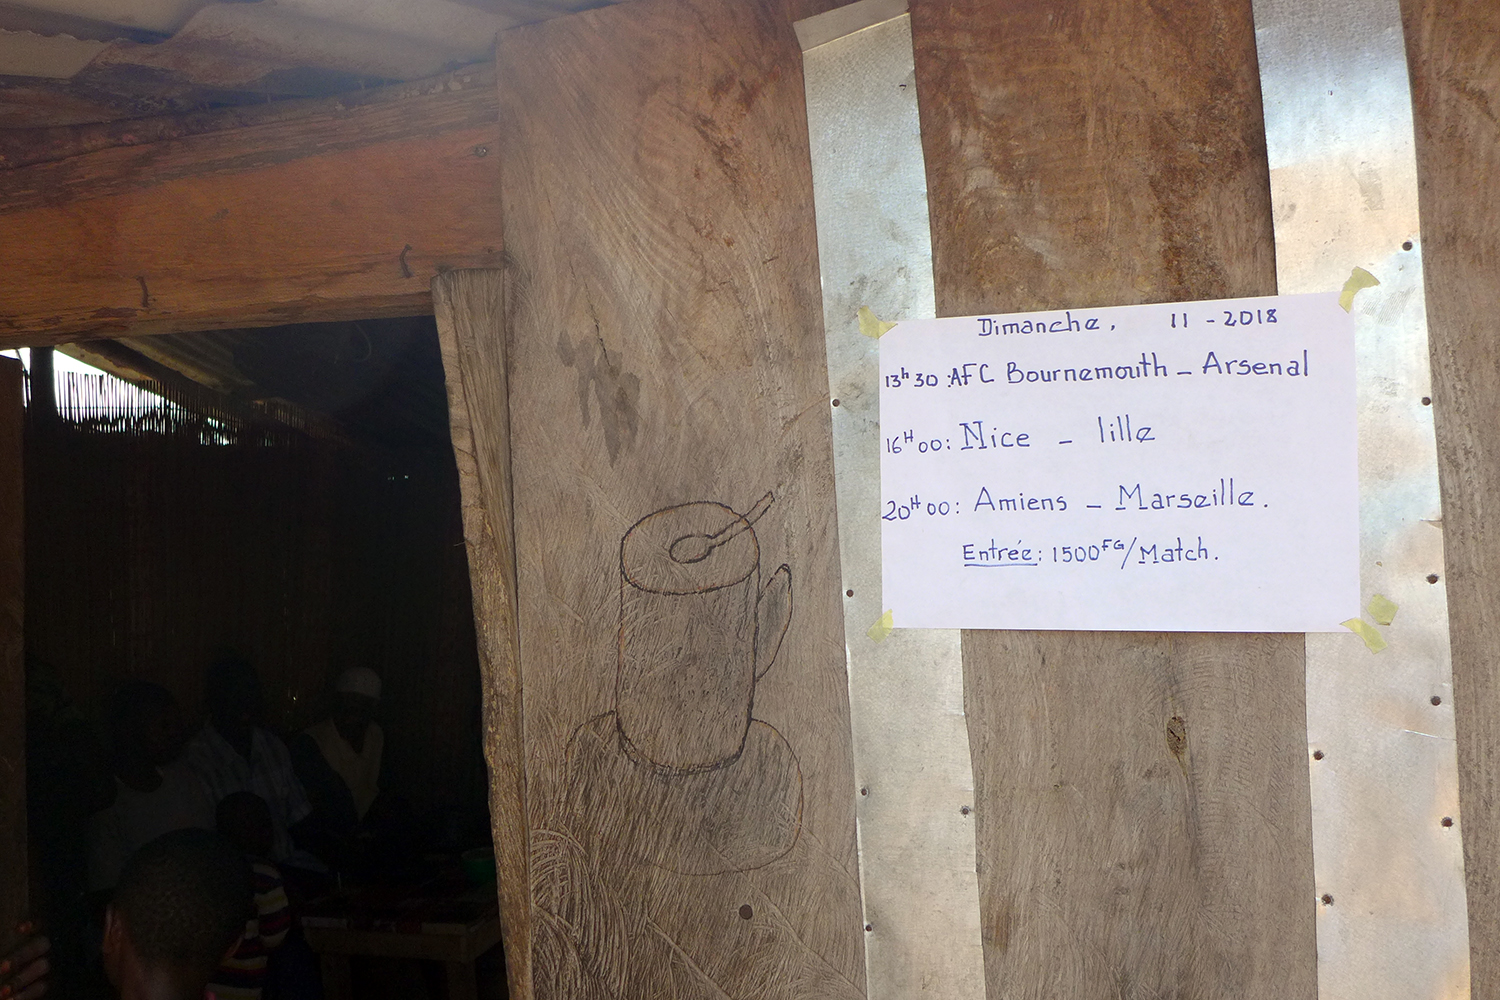 Dimanche, 11 - 2018
13h 30 : AFC Bournemouth - Arsenal
16H 00 : Nice - lille
20H 00 : Amiens - Marseille.
Entrée : 1500FG/Match.